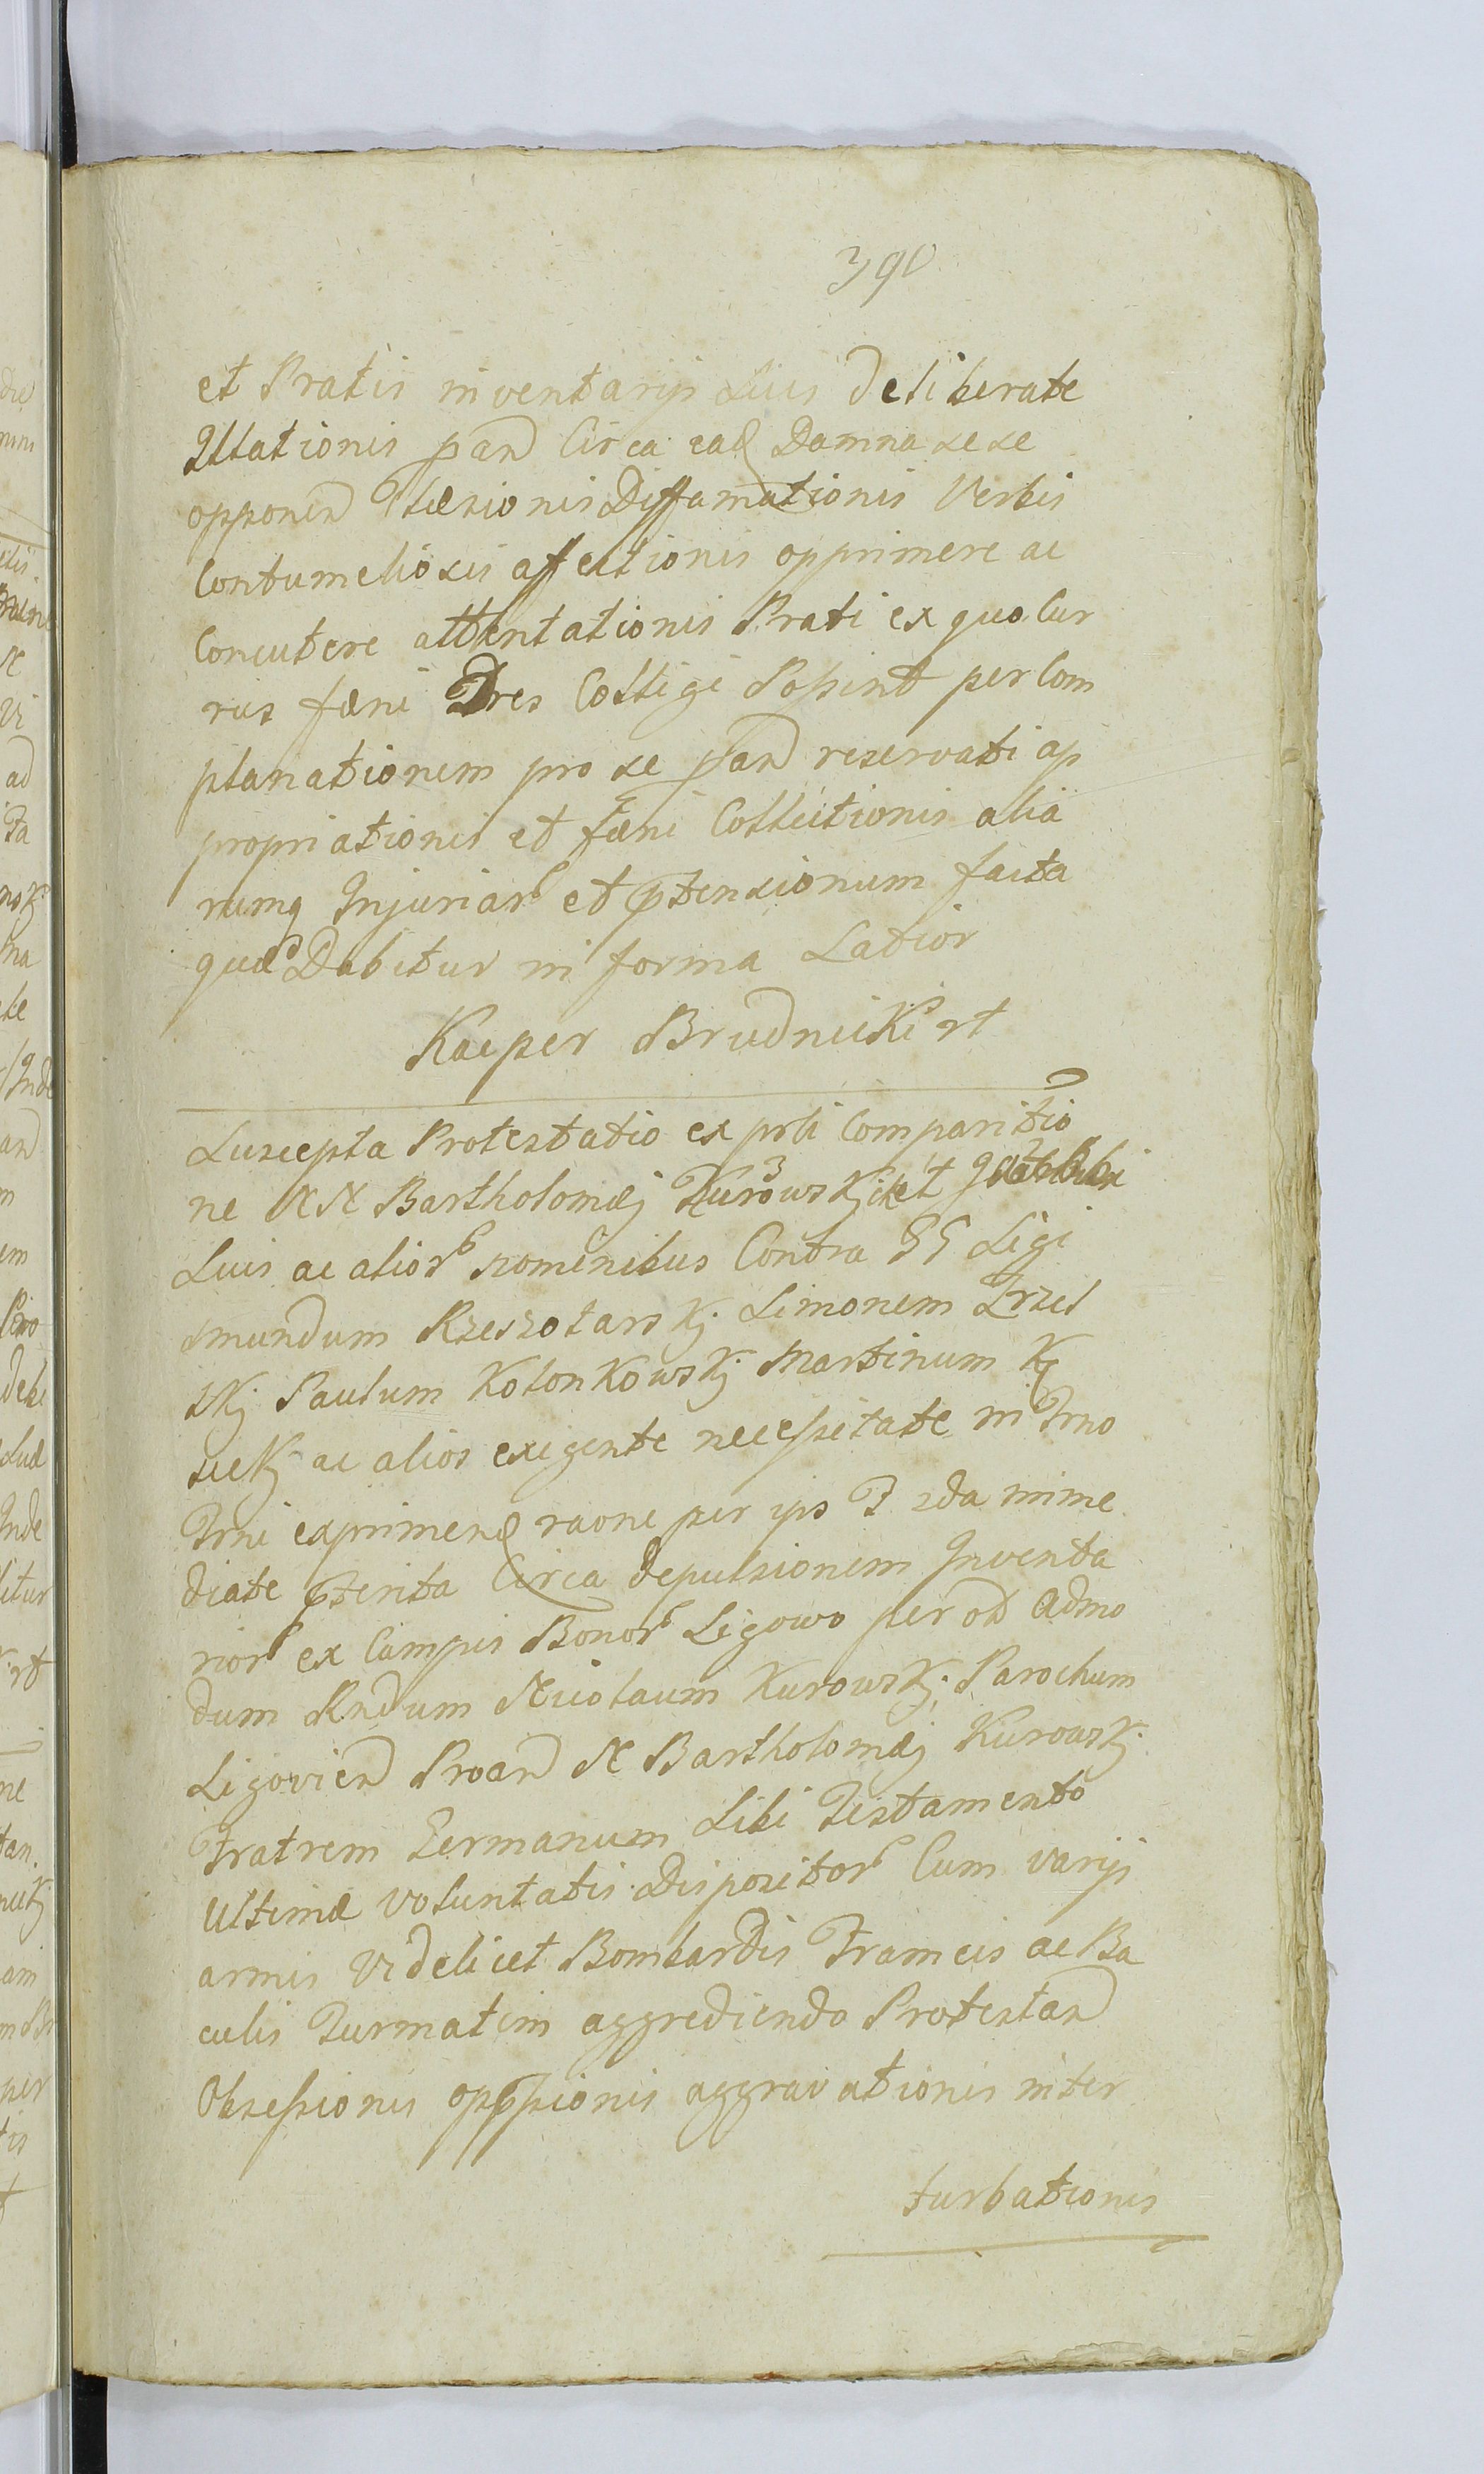 390
et Pratis inventarijs Suis deliberate
Illationis pan Circa ead Damna sese
opponen Læsionis Diffamationis Verbis
Contumeliosis affectionis opprimere ac
Concutere attentationis Prati ex quo Cur
rus fæni Tres Colligi Possint per Com
planationem pro se pan reservati ap
propriationis et fæni Collectionis alia
rumq Injuriar et ptensionum facta
quæ Dabitur in forma Latior
Kacper Brudnicki rt
Suscepta Protestatio ex prli Comparitio
ne NN Bartholomæj Kurowskj et
Suis ac alior nominibus Contra GG Sigi
smundum Rzeszotarskj Simonem Zrzel
skj Paulum Kolonkowskj Martinum Kę
sickj ac alios exigente necessitate in Trno
Trni exprimend raone per ips F 2da imme
diate pterita Circa depulsionem Inventa
rior ex Campis Bonor Ligowo per od Admo
dum Rndum Nicolaum Kurowskj Parochum
Ligovien Proan N Bartholomæj Kurowskj
Fratrem Germanum Sibi Testamento
Ultimæ voluntatis Dispositor Cum varijs
armis Videlicet Bombardis Frameis ac Ba
culis Turmatim aggrediendo Protestan
Obsessionis oppssionis aggravationis inter
turbationis